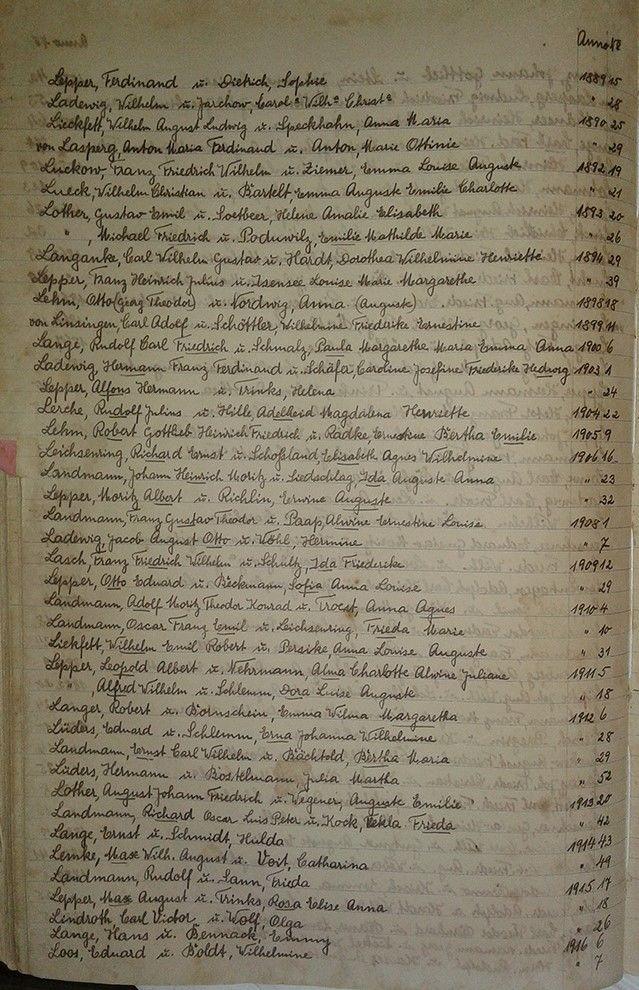 Anno №
Lepper, Ferdinand u. Dietrich, Sophie 1889 15
Ladewig, Wilhelm u. Jarchow, Carolª Wilhª Christª " 28
Lieckfett, Wilhelm August Ludwig u. Speckhahn, Anna Maria 1890 25
von Lasperg, Anton Maria Ferdinand u. Anton, Marie Ottinie " 29
Luckow, Franz Friedrich Wilhelm u. Ziemer, Emma Louise Auguste 1892 19
Lueck, Wilhelm Christian u. Bartelt, Emma Auguste Emilie Charlotte " 21
Lother, Gustav Emil u. Soetbeer, Helene Amalie Elisabeth 1893 20
" , Michael Friedrich u. Poduwilz, Emilie Mathilde Marie " 26
Langanke, Carl Wilhelm Gustav u. Hardt, Dorothea Wilhelmine Henriette 1894 29
Lepper, Franz Heinrich Julius u. Isensee Louise Marie Margarethe " 39
Lehm, Otto (Georg Theodor) u. Nordwig, Anna (Auguste) 1898 18
von Linsingen, Carl Adolf u. Schöttler, Wilhelmine Friederike Ernestine 1899 11
Lange, Rudolf Carl Friedrich u. Schmalz, Paula Margarethe Maria Emma Anna 1900 6
Ladewig, Hermann Franz Ferdinand u. Schäfa, Caroline Josefine Friederike Hedwig 1903 1
Lepper, Alfons Hermann u. Trinks, Helena " 24
Lerche, Rudolf Julius u. Hille Adelheid Magdalena Henriette 1904 22
Lehm, Robert Gottlieb Heinrich Friedrich u. Radke, Ernestine Bertha Emilie 1905 9
Leichsenring, Richard Ernst u. Schoßland, Elisabeth Agnes Wilhelmine 1906 16
Landmann, Johann Heinrich Moritz u. Liedschlag, Ida Auguste Anna " 23
Lepper, Moritz Albert u. Richlin, Erwine Auguste " 32
Landmann, Franz Gustav Theodor u. Paap, Alwine Ernestine Louise 1908 1
Ladewig, Jacob August Otto u. Wöhl, Hermine " 7
Lasch, Franz Friedrich Wilhelm u. Schultz, Ida Friederike 1909 12
Lepper, Otto Eduard u. Bieckmann, Sofia Anna Louise " 29
Landmann, Adolf Moritz Theodor Konrad u. Trost, Anna Agnes 1910 4
Landmann, Oscar Franz Emil u. Leichsenring, Frieda Marie " 10
Liekfett, Wilhelm Emil Robert u. Persike, Anna Louise Auguste " 31
Lepper, Leopold Albert u. Nehrmann, Alma Charlotte Alwine Juliane 1911 5
" , Alfred Wilhelm u. Schlemm, Dora Luise Auguste " 18
Langer, Robert u. Bornschein, Emma Wilma Margaretha 1912 6
Lüders, Eduard u. Schlemm, Erna Johanna Wilhelmine " 28
Landmann, Ernst Carl Wilhelm u. Bächtold, Bertha Maria " 29
Lüders, Hermann u. Bostelmann Julia Martha " 52
Lother, August Johann Friedrich u. Wegener, Auguste Emilie 1913 20
Landmann, Richard Oscar Luis Peter u. Kock, Vekla Frieda " 42
Lange, Ernst u. Schmidt, Hulda 1914 43
Lemke, Max Wilh. August u. Voit, Catharina " 49
Landmann, Rudolf u. Lann, Frieda 1915 17
Lepper, Max August u. Trinks, Rosa Elise Anna " 18
Lindroth Carl Victor u. Wolf, Olga " 26
Lange, Hans u. Bennack, Emmy 1916 6
Loos, Eduard u. Boldt, Wilhelmine " 7